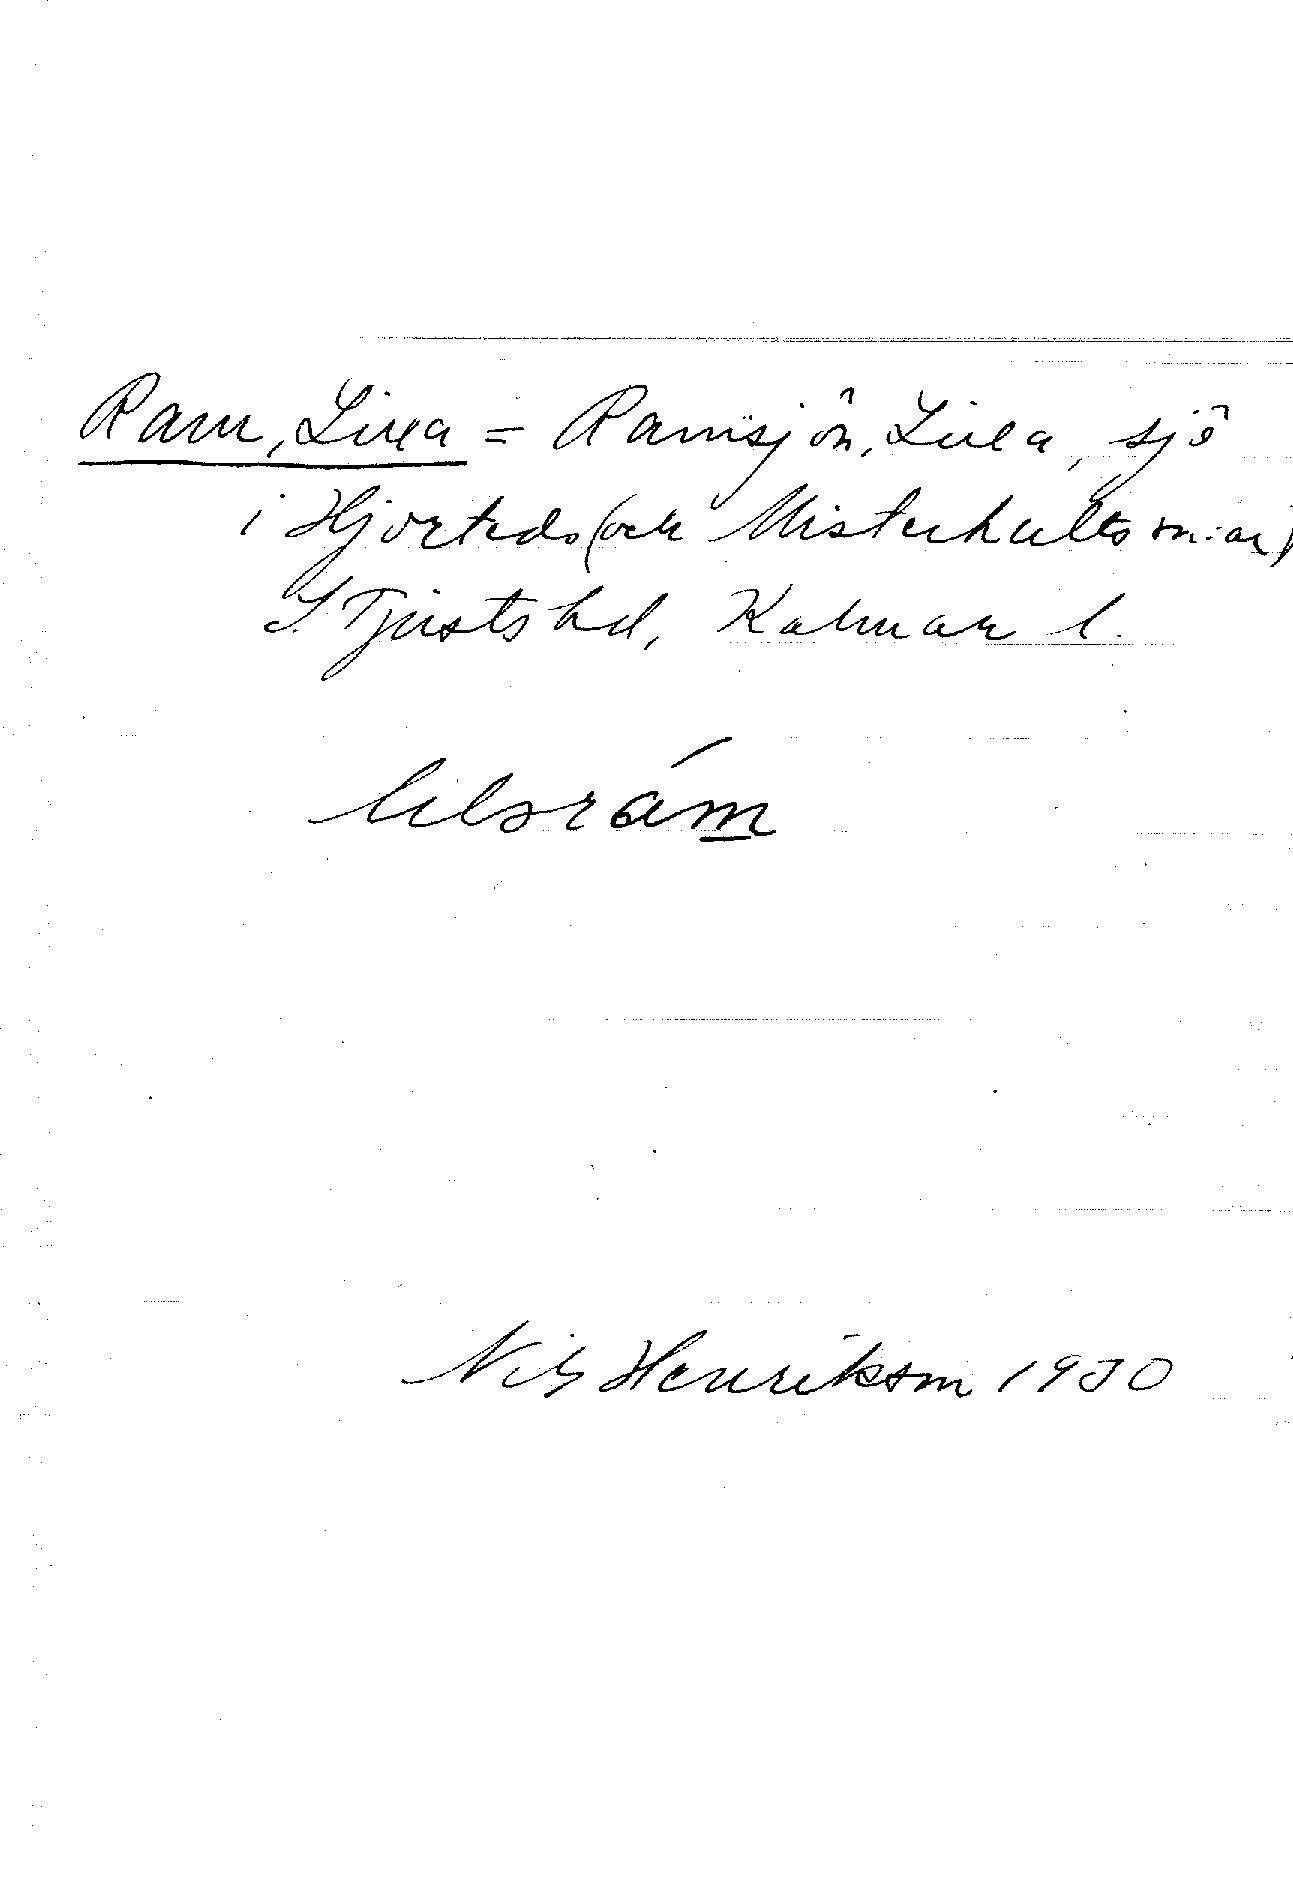 Ram, Lilla = Ramsjön, Lilla, sjö
i Hjorteds (och Misterhults sn:ar)
S. Tjusts hd, Kalmar l.
lilsrám
Nils Henrikson 1930